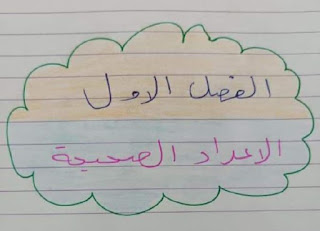 الفصل الاول
الاعداد الصحيحة